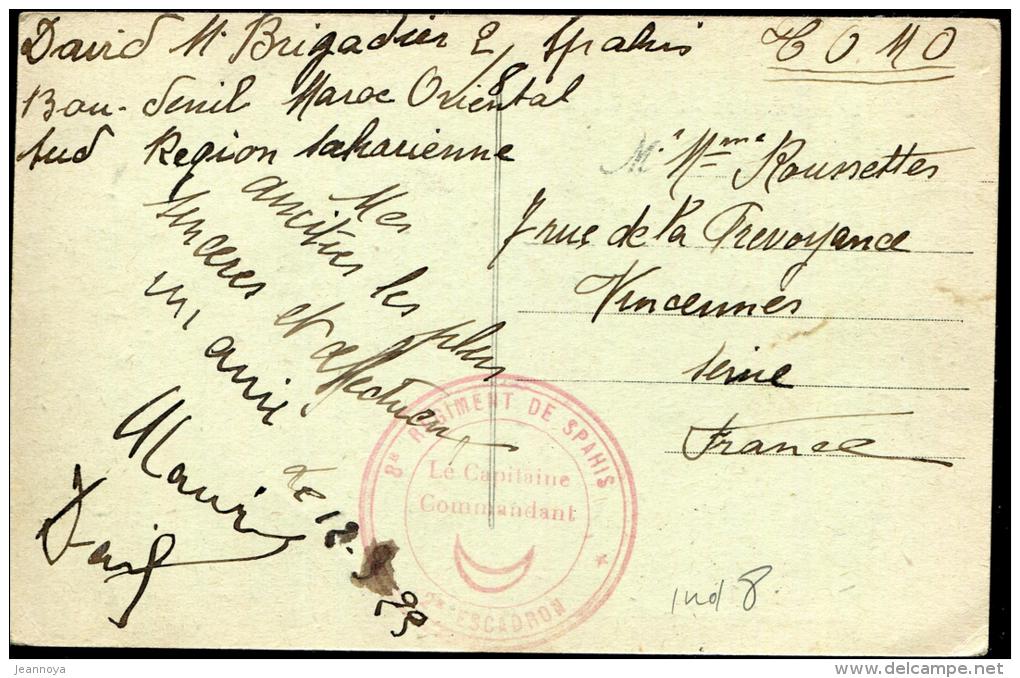 David M. Brigadier 2/8 Spahis
Bou-Denil Maroc Oriental
Sud Region Saharienne
T O M O
M. Mme Roussettes
7 rue de la Prevoyance
Vincennes
Seine
France
Mes
amitiés les plus
sinceres et affectueu
un ami
Mauri
David
Le 12. 9 29
8E REGIMENT DE SPAHIS
Le Capitaine
Commandant
2E ESCADRON
ind 8.
jeannoya
www.delcampe.net